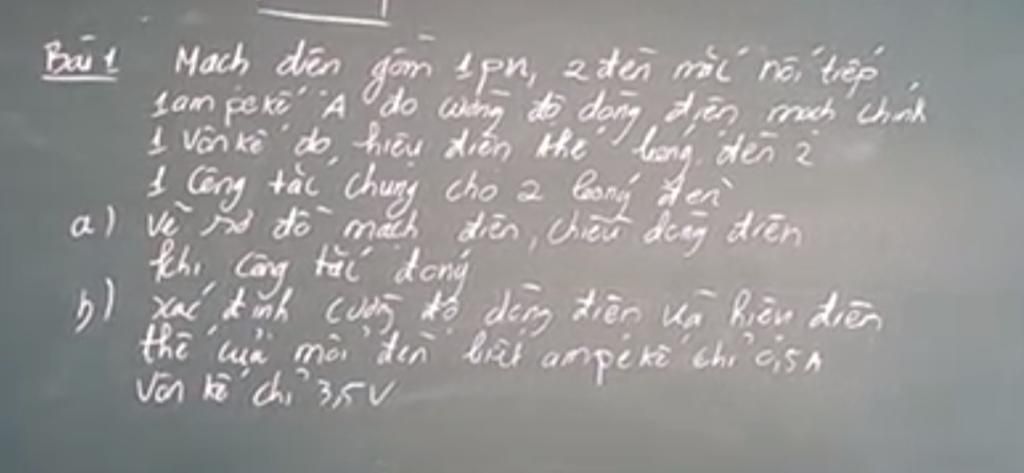 Bài 1 Mạch điện gồm 1 pn, 2 đèn mắc nối tiếp,
1 ampe kế A đo cường độ dòng điện mạch chính
1 Vôn kế đo hiệu điện thế bóng đèn 2
1 Công tắc chung cho 2 bóng đèn
a) vẽ sơ đồ mạch điện, chiều dòng điện
khi công tắc đóng
b) xác định cường độ dòng điện và hiệu điện
thế của mỗi đèn biết ampe kế chỉ 0,5A
Vôn kế chỉ 3,5V